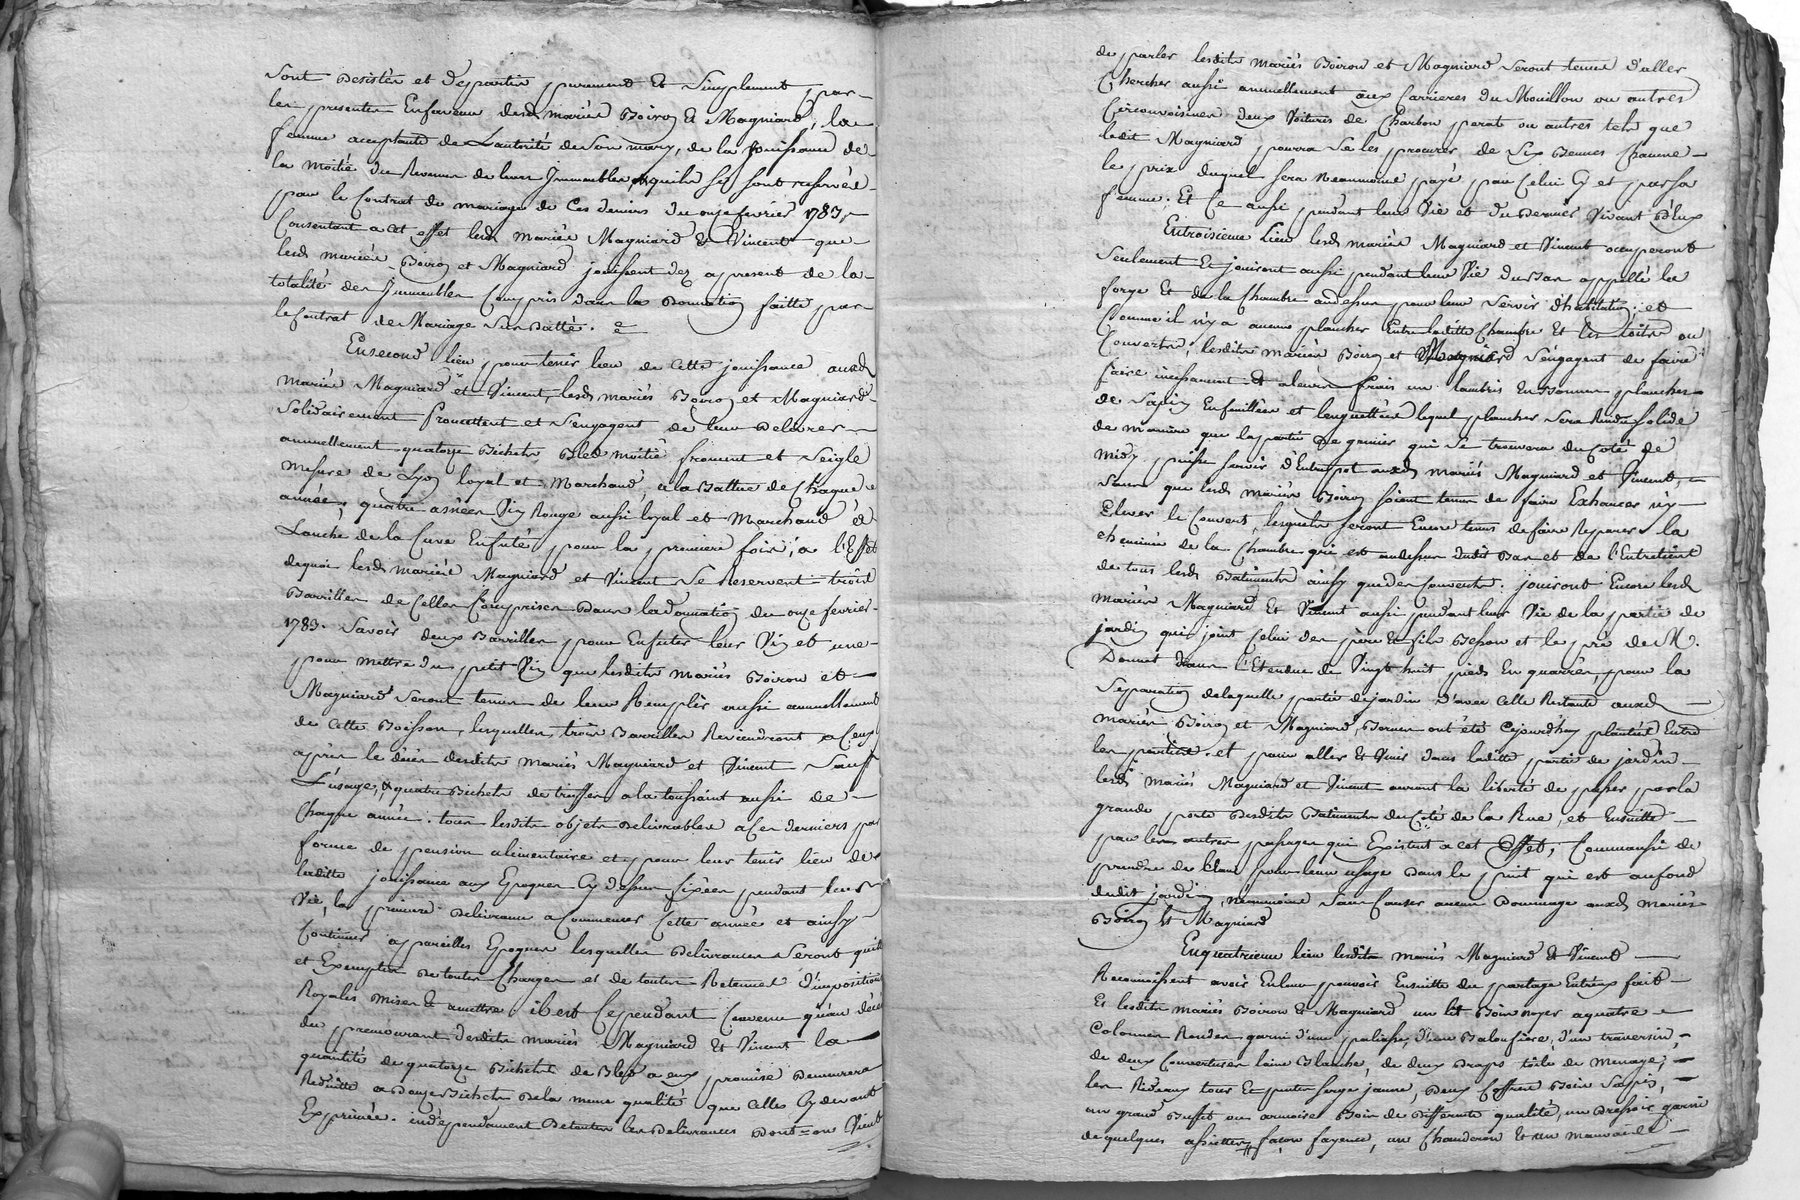 sont desistés et départis purement et simplement par
les presentes En faveur desd. mariés Boiron et Magniard, la
femme acceptante de L'autorité de son mary, de la jouissance de
la moitié du Revenu de leurs Immeubles qu'ils se sont reservés
par le Contrat de mariage de Ces derniers du onze fevrier 1783,
Consentant a cet effet lesd. mariés Magniard et Vincent que
lesd. mariés Boiron et Magniard jouissent dez apresent de la
totalité des Immeubles Compris dans la Donnation faitte par
le Contrat de Mariage sus Datté.
En second lieu pour tenir lieu de Cette jouissance auxd.
mariés Magniard et Vincent, lesd. mariés Boiron et Magniard
Solidairement Promettent et s'engagent de leur Delivrer
annuellement quatorze Bichets Bled moitié froment et Seigle
mesure de Lyon loyal et Marchand, a la Battue de Chaque
année, quatre asnées Vin Rouge aussi loyal et Marchand à
L'anche de la Cuve Enfuté pour la premiere fois, a l'Effet
dequoi lesd. mariés Magniard et Vincent se Reservent trois
Barrilles de Celles Comprises Dans la donnation du onze fevrier
1783. Savoir deux Barrilles pour Enfuter leur Vin et une
pour mettre du petit Vin que lesdits mariés Boiron et
Magniard seront tenus de leur Remplir aussi annuellement
de Cette Boisson, lesquelles trois Barrilles Reviendront a Ceux
après le décès desdits mariés Magniard et Vincent Sauf
L'usage, & quatre Bichets de truffes a la toussaint aussi de
Chaque année. tous lesdits objets Delivrables a Ces derniers par
forme de pension alimentaire et pour leur tenir lieu de
laditte jouissance aux Epoques Cy dessus fixées pendant leur
Vie, la premiere Delivrance a Commencer Cette année et ainsy
Continuer a pareilles Epoques lesquelles Delivrances Seront quittes
et Exemptes de toutes Charges et de toutes Retenues d'impositions
Royales mises & amettre il est Cependant Convenu qu'au décès
du premourant desdits mariés Magniard et Vincent la
quantité de quatorze Bichets de Bled a eux promise Demeurera
Reduitte a Douze Bichets de la meme qualité que Celles Cy devant
Exprimée. indépendament de toutes les Delivrances Dont on Vient
de parler lesdits mariés Boiron et Magniard seront tenus d'aller
Chercher aussi annuellement aux Carrieres du Mouillon ou autres
Circonvoisines deux Voitures de Charbon perat ou autres tels que
ledit Magniard pourra se les procurer de Six Bennes Chacune
le prix duquel sera Neanmoins payé par Celui Cy et par sa
femme; Et Ce aussi pendant leur Vie et du Dernier Vivant D'Eux
En troisieme Lieu lesd. mariés Magniard et Vincent occuperont
Seulement Et jouiront aussi pendant leur Vie du Bas appellé la
forge Et de la Chambre au dessus pour leur Servir d'habitation; et
Comme il n'y a aucun plancher Entre laditte Chambre Et les toits ou
Couverts, lesdits mariés Boiron et Magniard s'engagent de faire
faire incessament & a leurs frais un lambris en Bonnes planches
de Sapin Enfeuillées et lenguettées lequel plancher Sera Rendu Solide
de maniere que la partie de grenier qui se trouvera du Coté de
midy puisse servir d'Entrepot auxd. mariés Magniard et Vincent,
sans que lesd. mariés Boiron soient tenus de faire Exhausser ny
Elever le Couvert, lesquels seront Encore tenus de faire Reparer la
cheminée de la Chambre qui est au dessus dudit Bas et de l'Entretient
de tous lesd. Batiments ainsy que des Couverts. jouiront Encore lesd.
mariés Magniard Et Vincent aussi pendant leur Vie de la partie de
jardin qui joint Celui des père et fils Besson et le pré de M.
Donnet Dans l'Etendue de Vingt huit pieds En quarrés, pour la
Separation de laquelle partie de jardin d'avec Celle Restante auxd.
mariés Boiron et Magniard, Bornes ont été Cejourdhuy plantées Entre
les parties. et pour aller et Venir dans laditte partie de jardin
lesd. mariés Magniard et Vincent auront la liberté de passer par la
grande porte desdits Batiments du Coté de la Rue, et Ensuitte
par les autres passages qui Existent a cet Effet, Comm'aussi de
prendre de l'eau pour leur usage dans le puit qui est au fond
dudit jardin, Neanmoins sans Causer aucun Dommage auxd. mariés
Boiron et Magniard
En quatrieme lieu lesdits mariés Magniard & Vincent
Reconnoissent avoir En leur pouvoir Ensuitte du partage Entr'eux fait
Et lesdits mariés Boiron & Magniard un lit Bois noyer a quatre
Colonnes Rondes garni d'une paliasse, d'une Baloufiere, d'un traversin,
de deux Couvertures laine Blanche, de deux draps toile de menage,
les Rideaux tour Et pentes serge jaune, Deux Coffres Bois Sapin,
un grand Buffet ou armoire Bois de differente qualité, un Dressoir garni
de quelques assiettes façon fayence, un Chauderon Et un mauvais